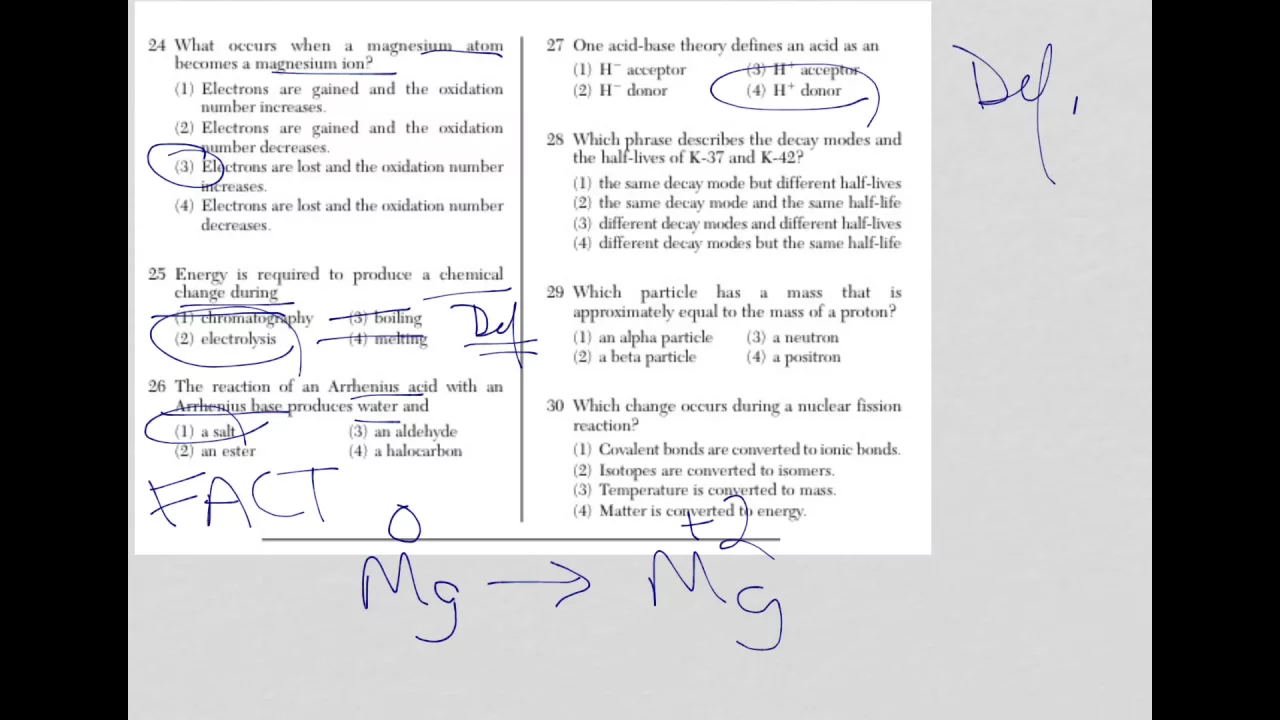 24 What occurs when a magnesium atom
becomes a magnesium ion?
(1) Electrons are gained and the oxidation
number increases.
(2) Electrons are gained and the oxidation
number decreases.
(3) Electrons are lost and the oxidation number
increases.
(4) Electrons are lost and the oxidation number
decreases.
25 Energy is required to produce a chemical
change during
(1) chromatography (3) boiling
(2) electrolysis (4) melting
Def
26 The reaction of an Arrhenius acid with an
Arrhenius base produces water and
(1) a salt (3) an aldehyde
(2) an ester (4) a halocarbon
FACT
27 One acid-base theory defines an acid as an
(1) H⁻ acceptor (3) H⁺ acceptor
(2) H⁻ donor (4) H⁺ donor
Def.
28 Which phrase describes the decay modes and
the half-lives of K-37 and K-42?
(1) the same decay mode but different half-lives
(2) the same decay mode and the same half-life
(3) different decay modes and different half-lives
(4) different decay modes but the same half-life
29 Which particle has a mass that is
approximately equal to the mass of a proton?
(1) an alpha particle (3) a neutron
(2) a beta particle (4) a positron
30 Which change occurs during a nuclear fission
reaction?
(1) Covalent bonds are converted to ionic bonds.
(2) Isotopes are converted to isomers.
(3) Temperature is converted to mass.
(4) Matter is converted to energy.
0 +2
Mg → Mg